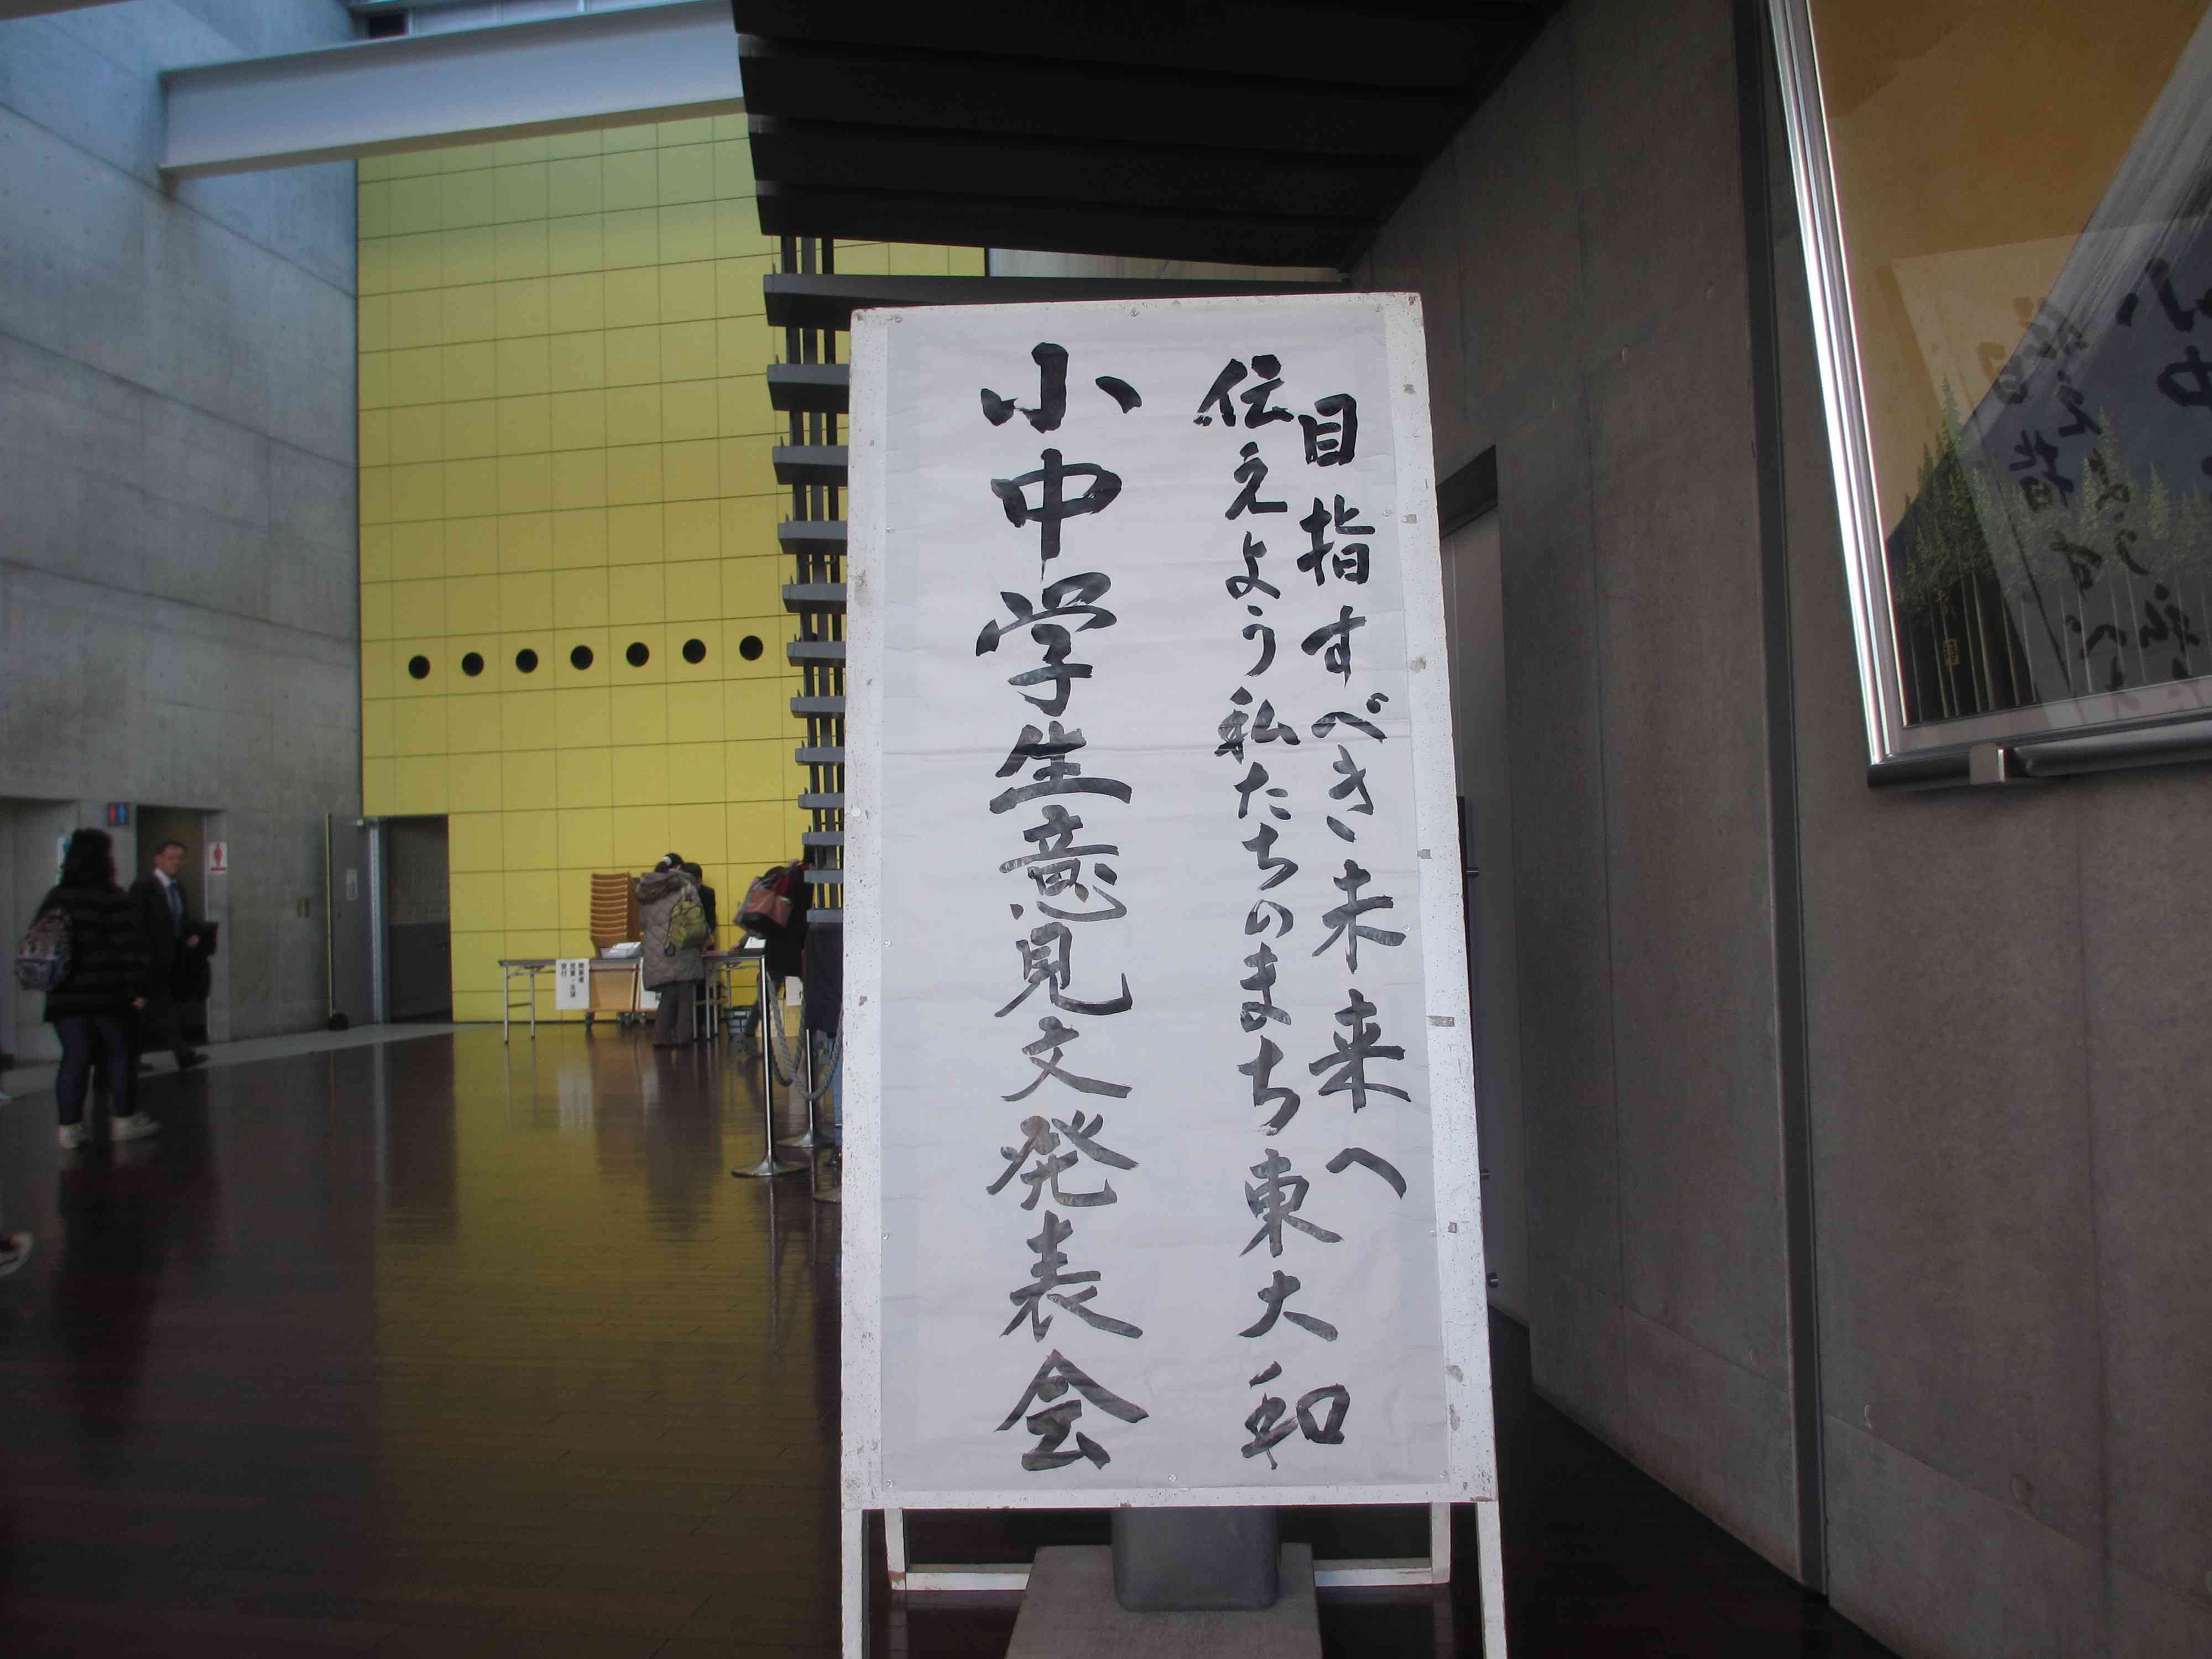 目指すべき未来へ
伝えよう私たちのまち東大和
小中学生意見文発表会